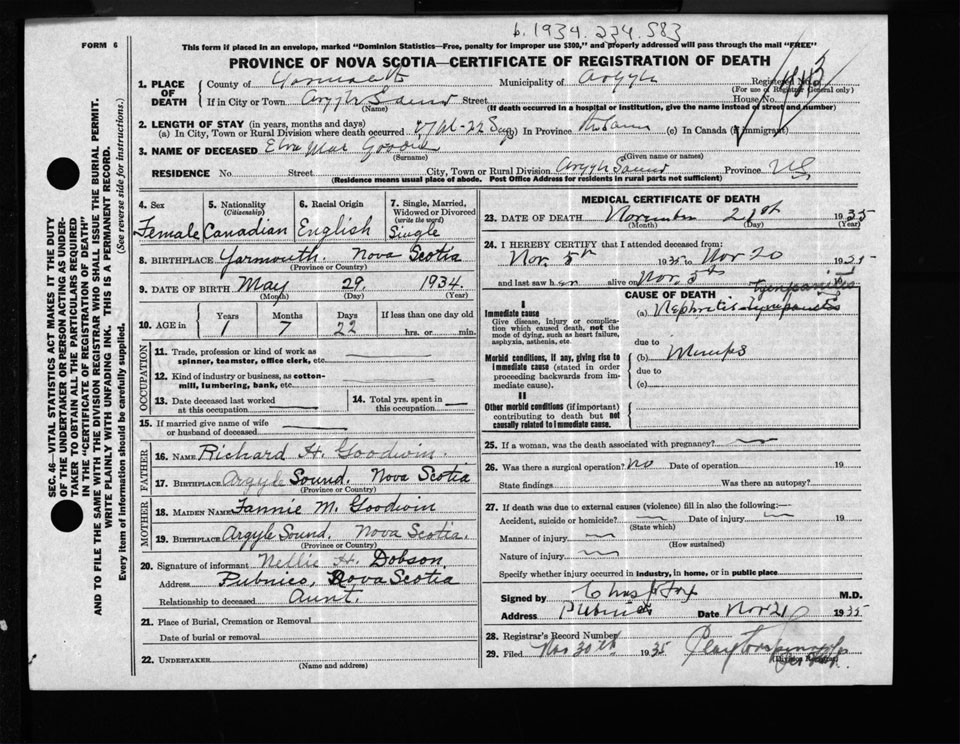 b. 1934. 234. 583
FORM 6
This form if placed in an envelope, marked "Dominion Statistics—Free, penalty for improper use $300," and properly addressed will pass through the mail "FREE"
PROVINCE OF NOVA SCOTIA—CERTIFICATE OF REGISTRATION OF DEATH
1. PLACE OF DEATH
County of Yarmouth Municipality of Argyle Registered No.
(For use of Registrar General only)
If in City or Town Argyle Sound Street House No.
(Name) (If death occurred in a hospital or institution, give the name instead of street and number)
2. LENGTH OF STAY (in years, months and days)
(a) In City, Town or Rural Division where death occurred (b) In Province (c) In Canada (if immigrant)
3. NAME OF DECEASED Elva Mae Goodwin
(Surname) (Given name or names)
RESIDENCE No. Street City, Town or Rural Division Argyle Sound Province NS
(Residence means usual place of abode. Post Office Address for residents in rural parts not sufficient)
4. Sex Female
5. Nationality (Citizenship) Canadian
6. Racial Origin English
7. Single, Married, Widowed or Divorced (write the word) Single
8. BIRTHPLACE Yarmouth. Nova Scotia
(Province or Country)
9. DATE OF BIRTH May 29. 1934.
(Month) (Day) (Year)
10. AGE in Years Months Days If less than one day old
1 7 22 hrs. or min.
OCCUPATION
11. Trade, profession or kind of work as spinner, teamster, office clerk, etc.
12. Kind of industry or business, as cotton-mill, lumbering, bank, etc.
13. Date deceased last worked at this occupation
14. Total yrs. spent in this occupation
15. If married give name of wife or husband of deceased
FATHER
16. NAME Richard H. Goodwin
17. BIRTHPLACE Argyle Sound. Nova Scotia
(Province or Country)
MOTHER
18. MAIDEN NAME Fannie M. Goodwin
19. BIRTHPLACE Argyle Sound, Nova Scotia.
(Province or Country)
20. Signature of informant Nellie H. Dobson.
Address Pubnico, Nova Scotia
Relationship to deceased Aunt.
21. Place of Burial, Cremation or Removal
Date of burial or removal
22. UNDERTAKER
(Name and address)
MEDICAL CERTIFICATE OF DEATH
23. DATE OF DEATH November 21st 1935
(Month) (Day) (Year)
24. I HEREBY CERTIFY that I attended deceased from:
Nov. 5th 1935 to Nov 20 1935
and last saw her alive on Nov. 5th
CAUSE OF DEATH
I
Immediate cause
Give disease, injury or complication which caused death, not the mode of dying, such as heart failure, asphyxia, asthenia, etc.
(a) Nephritis
due to
Morbid conditions, if any, giving rise to immediate cause (stated in order proceeding backwards from immediate cause).
(b) Mumps
due to
(c)
II
Other morbid conditions (if important) contributing to death but not causally related to immediate cause.
25. If a woman, was the death associated with pregnancy?
26. Was there a surgical operation? no Date of operation 19
State findings Was there an autopsy?
27. If death was due to external causes (violence) fill in also the following:—
Accident, suicide or homicide? Date of injury 19
(State which)
Manner of injury
(How sustained)
Nature of injury
Specify whether injury occurred in industry, in home, or in public place
Signed by Chas. Fox M.D.
Address Pubnico Date Nov 21 1935
28. Registrar's Record Number
29. Filed Nov 30th 1935
(Division Registrar)
SEC. 46—VITAL STATISTICS ACT MAKES IT THE DUTY
OF THE UNDERTAKER OR PERSON ACTING AS UNDER-
TAKER TO OBTAIN ALL THE PARTICULARS REQUIRED
IN THE "CERTIFICATE OF REGISTRATION OF DEATH"
AND TO FILE THE SAME WITH THE DIVISION REGISTRAR WHO SHALL ISSUE THE BURIAL PERMIT.
WRITE PLAINLY WITH UNFADING INK. THIS IS A PERMANENT RECORD.
Every item of information should be carefully supplied. (See reverse side for instructions.)